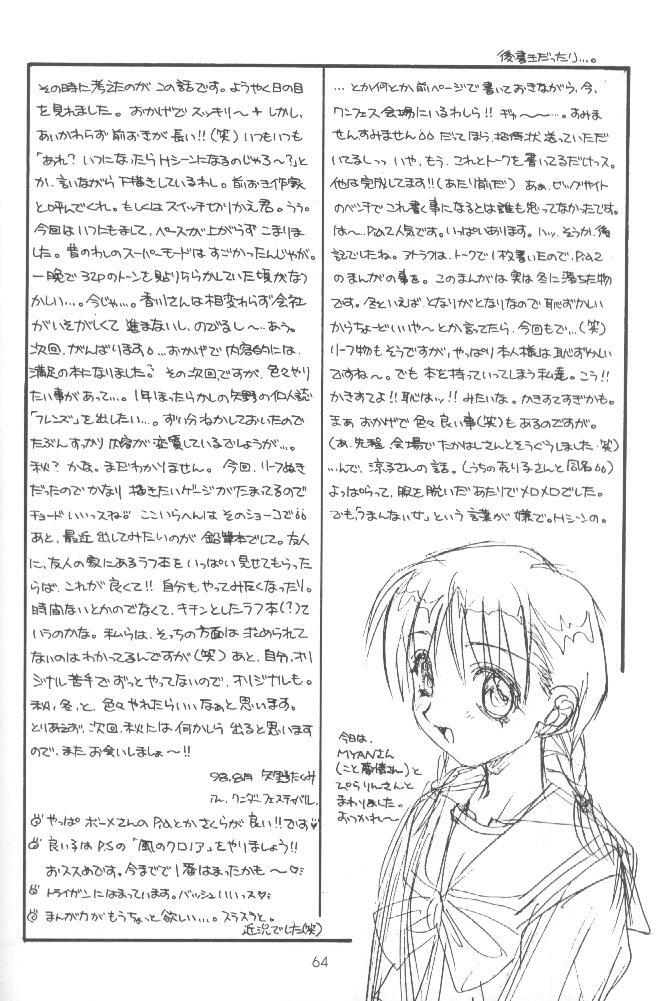 後書きだったり…。
…とか何とか、前ページで書いておきながら、今、
ワンフェス会場にいるわしら!! ギャ〜〜…。すみま
せんすみません だってほう、招待状送っていただ
いてるしっっ いや、もう、これとトークを書いてるだけっス。
他は完成してます!!(あたり前だ) あぁ、ビッグサイト
のベンチでこれ書く事になるとは誰も思ってなかったです。
は〜…P.a.2人気です。いっぱいあります。ハッ、そうか、後
記でしたね。アトラフは、トークで1枚書いたので、P.a.2
のまんがの事を。このまんがは実は冬に落ちた物
です。冬といえば、となりがとなりなので恥ずかしい
からちょーどいいや〜とか言ってたら、今回もで…(笑)
リーフ物もそうですが、やっぱり本人様は恥ずかしい
ですね〜。でも本を持っていってしまう私達。こう!!
かきすてよ!!恥はッ!!みたいな。かきすてすぎかも。
まぁおかげで色々良い事(笑)もあるのですが。
(あ、先程、会場でたかはしさんとそうぐうしました・笑)
…んで、涼子さんの話。(うちの売り子さんと同名)
よっぱらって、服を脱いだあたりでメロメロでした。
でも「つまんない女」という言葉が嫌で。Hシーンの。
その時に考えたのがこの話です。ようやく日の目
を見れました。おかげでスッキリ〜+ しかし、
あいかわらず前おきが長い!!(笑)いつもいつも
「あれ?いつになったらHシーンになるのじゃろ〜?」と
か、言いながら下描きしているわし。前おき作家
と呼んでくれ。もしくはスイッチきりかえ君。うう。
今回はいつにもまして、ペースが上がらずこまりま
した。昔のわしのスーパーモードはすごかったんじゃが。
一晩で32Pのトーンを貼りちらかしていた頃がなつ
かしい…。今じゃ…。香川さんは相変わらず会社
がいそがしくて進まないし、のびるし〜…あぅ。
次回、がんばります。…おかげで内容的には、
満足の本になりました。その次回ですが、色々やり
たい事があって…。1年ほったらかしの矢野の個人誌
「フレンズ」を出したい…。ずい分ねかしておいたので
たぶんすっかり内容が変質しているでしょうが…。
秋?かな。まだわかりません。今回、リーフぬき
だったのでかなり描きたいゲージがたまってるので
チョードいいっスね ここいらへんはそのショーコで
あと、最近出してみたいのが鉛筆本でして。友人
に、友人の家にあるラフ本をいっぱい見せてもらった
らば、これが良くて!!自分もやってみたくなったり。
時間ないとかのでなくて、キチンとしたラフ本(?)て
いうのかな。私らは、そっちの方面は求められて
ないのはわかってるんですが(笑)あと、自分、オリ
ジナル苦手でずっとやってないので、オリジナルも。
秋、冬、と、色々やれたらいいなぁと思います。
とりあえず、次回、秋には何かしら出ると思います
ので、またお会いしましょ〜!!
98.8月 矢野たくみ
アん、ワンダーフェスティバル。
やっぱボーメさんのP.aとかさくらが良い!!です♥
良い子はP.Sの「風のクロノア」をやりましょう!!
おススメです。今までで1番はまったかも〜♡
トライガンにはまっています。バッシュいいっス♡
まんが力がもうちょっと欲しい…。スラスラと。
近況でした(笑)
今日は、
MYANさん
(こと夢情さん)と
ぴららりんさんと
まわりました。
おつかれ〜
64